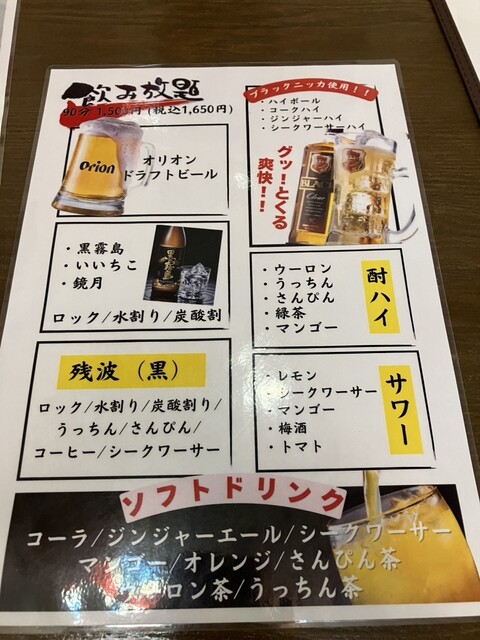 飲み放題
90分 1,500円(税込1,650円)
Orion
オリオン
ドラフトビール
ブラックニッカ使用！！
・ハイボール
・コークハイ
・ジンジャーハイ
・シークワーサーハイ
グッ！とくる
爽快！！
BLACK
Clear
・黒霧島
・いいちこ
・鏡月
黒霧島
ロック/水割り/炭酸割
・ウーロン
・うっちん
・さんぴん
・緑茶
・マンゴー
酎ハイ
残波（黒）
ロック/水割り/炭酸割り/
うっちん/さんぴん/
コーヒー/シークワーサー
・レモン
・シークワーサー
・マンゴー
・梅酒
・トマト
サワー
ソフトドリンク
コーラ/ジンジャーエール/シークワーサー
マンゴー/オレンジ/さんぴん茶
ウーロン茶/うっちん茶